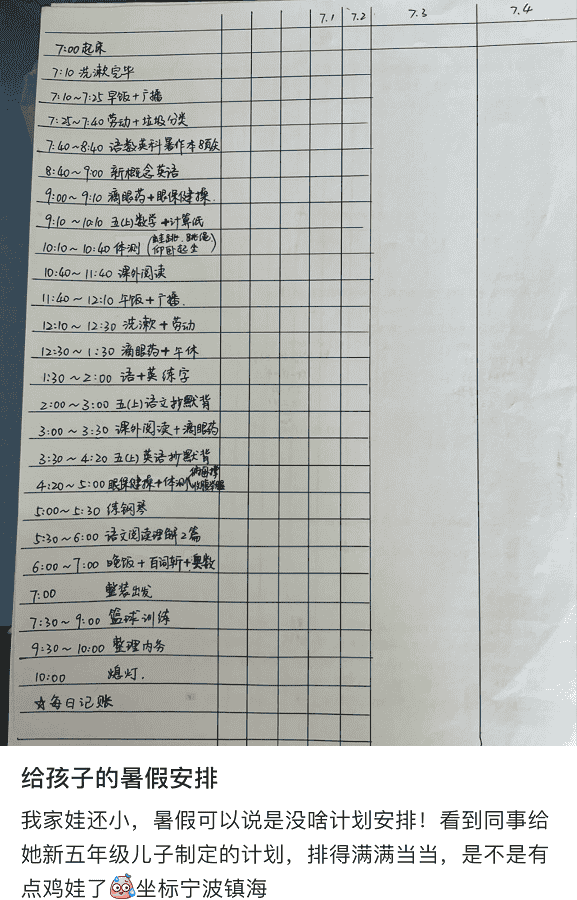 7.1 7.2 7.3 7.4
7:00 起床
7:10 洗漱完毕
7:10~7:25 早饭+广播
7:25~7:40 劳动+垃圾分类
7:40~8:40 语数英科暑作本8页
8:40~9:00 新概念英语
9:00~9:10 滴眼药+眼保健操.
9:10~10:10 五(上)数学+计算纸
10:10~10:40 体测(蛙跳.跳绳 仰卧起坐)
10:40~11:40 课外阅读
11:40~12:10 午饭+广播.
12:10~12:30 洗漱+劳动
12:30~1:30 滴眼药+午休
1:30~2:00 语+英练字
2:00~3:00 五(上)语文抄默背
3:00~3:30 课外阅读+滴眼药
3:30~4:20 五(上)英语抄默背
4:20~5:00 眼保健操+体测
5:00~5:30 练钢琴
5:30~6:00 语文阅读理解2篇
6:00~7:00 晚饭+百词斩+奥数
7:00 整装出发
7:30~9:00 篮球训练
9:30~10:00 整理内务
10:00 熄灯.
☆每日记账
给孩子的暑假安排
我家娃还小，暑假可以说是没啥计划安排！看到同事给
她新五年级儿子制定的计划，排得满满当当，是不是有
点鸡娃了坐标宁波镇海